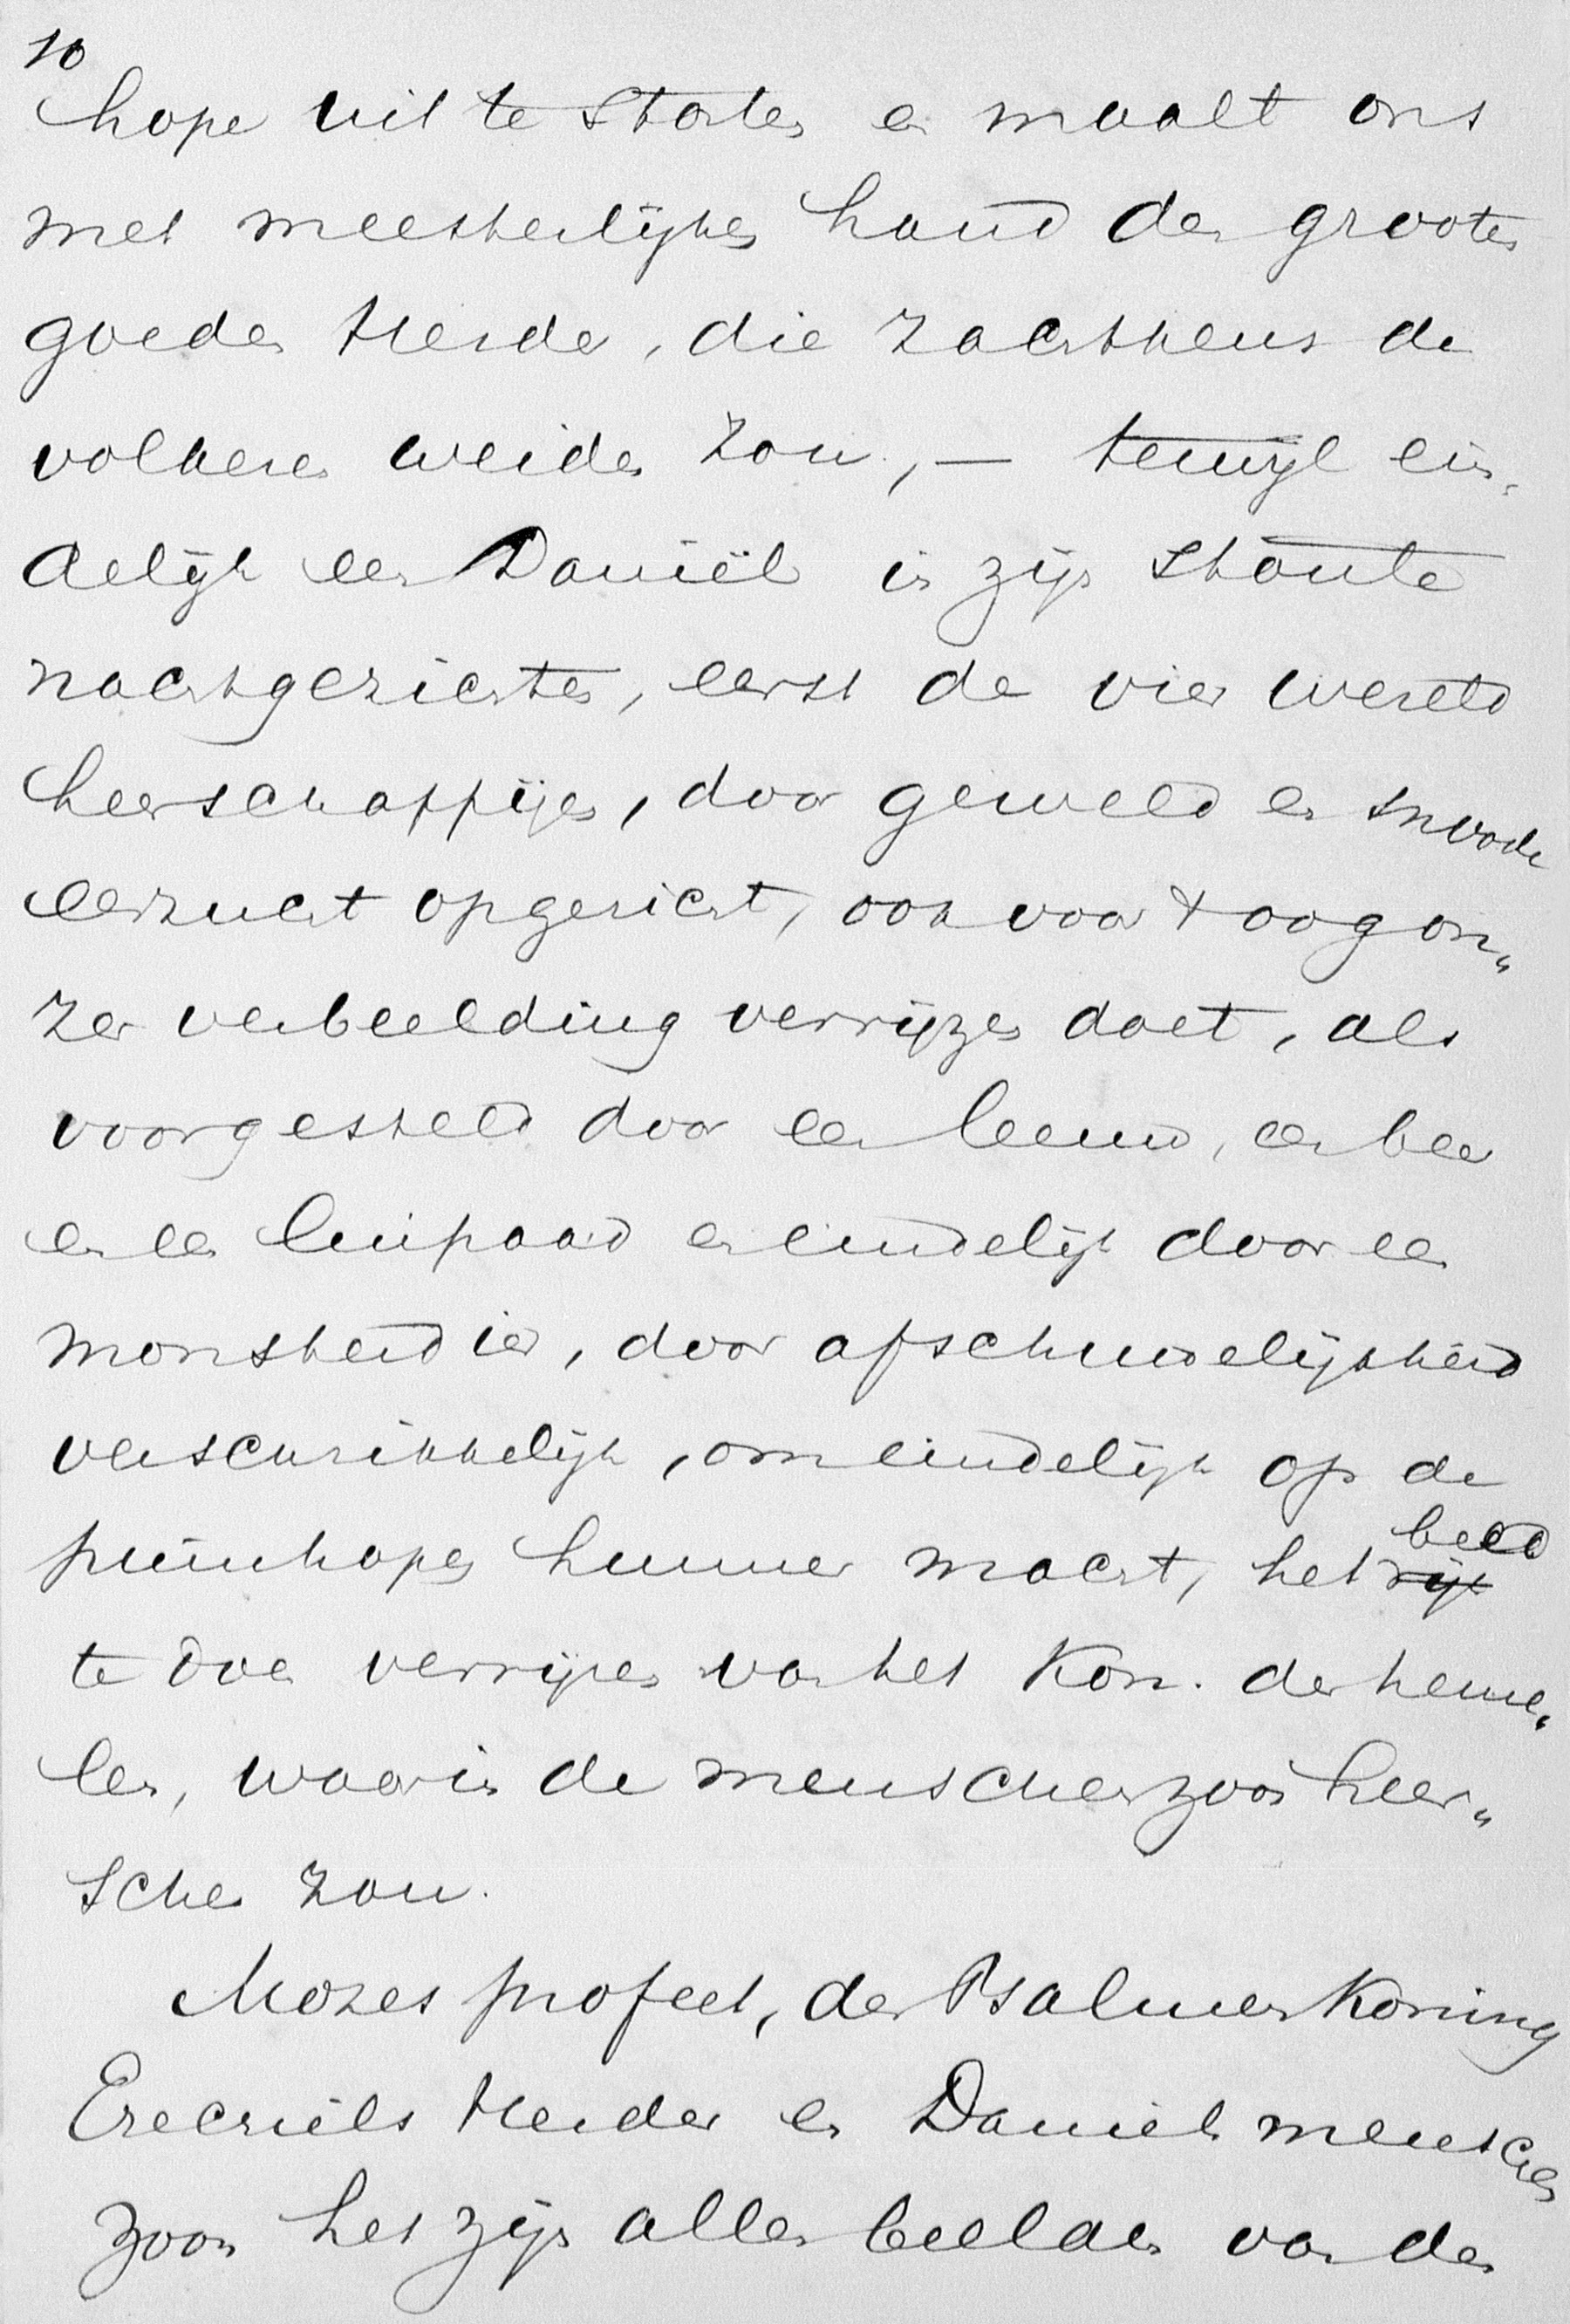 10
hope uit te storten en maalt ons
met meesterlijken hand den grooten
goeden Herder, die zachtkens de
volkeren weiden zou, — terwijl ein„
delijk een Daniël in zijn stoute
nachtgezichten, eerst de vier wereld
heerschappijen, door geweld en snoode
eerzucht opgericht, ook voor 't oog on„
zer verbeelding verrijzen doet, als
voorgesteld door een leeuw, een beer
en een luipaard en eindelijk door een
monsterdier, door afschuwelijkheid
verschrikkelijk, om eindelijk op de
puinhopen hunner macht, het ~~rijk~~ beeld
te doen verrijzen van het Kon. der heme„
len, waarin de menschenzoon heer„
schen zou.
Mozes profeet, der Psalmen Koning
Ezechiëls Herder en Daniels menschen
zoon het zijn allen beelden van den